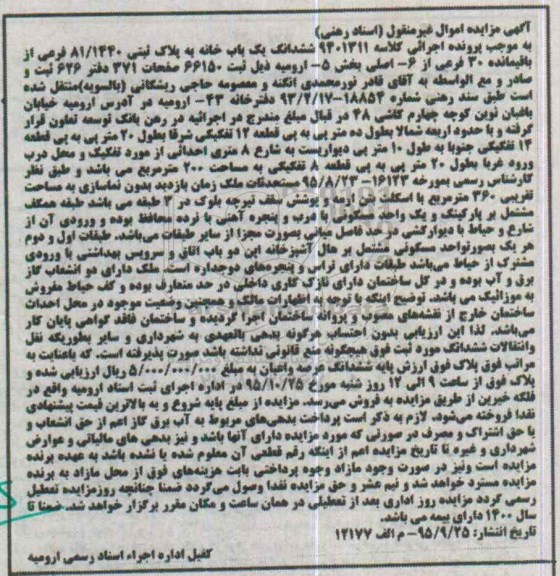 آگهی مزایده اموال غیرمنقول (اسناد رهنی)
به موجب پرونده اجرائی کلاسه ۹۴۰۱۳۱۱ ششدانگ یک باب خانه به پلاک ثبتی ۸۱/۱۴۴۰ فرعی از
باقیمانده ۳۰ فرعی از ۶- اصلی بخش ۵- ارومیه ذیل ثبت ۶۶۱۵۰ صفحات ۳۷۱ دفتر ۶۲۶ ثبت و
صادر و مع الواسطه به آقای قادر نورمحمدی انگنه و معصومه حاجی ریشکانی (بالسویه)منتقل شده
است طبق سند رهنی شماره ۱۸۸۵۴-۹۳/۴/۱۷ دفترخانه ۴۳- ارومیه در آدرس ارومیه خیابان
باغبان نوین کوچه چهارم کاشی ۴۸ در قبال مبلغ مندرج در اجرائیه در رهن بانک توسعه تعاون قرار
گرفته و با حدود اربعه شمالا بطول ده متر پی به پی قطعه ۱۲ تفکیکی شرقا بطول ۲۰ متر پی به پی قطعه
۱۴ تفکیکی جنوبا به طول ۱۰ متر پی دیواریست به شارع ۸ متری احداثی از مورد تفکیک و محل درب
ورود غربا بطول ۲۰ متر پی به پی قطعه ۸ تفکیکی به مساحت ۲۰۰ مترمربع می باشد و طبق نظر
کارشناس رسمی بمورخه ۱۶۱۲۳- مستحدثات ملک زمان بازدید بدون نماسازی به مساحت
تقریبی ۳۶۰ مترمربع با اسکلت بتن آرمه و پوشش سقف تیرچه بلوک در ۳ طبقه می باشد طبقه همکف
مشتمل بر پارکینگ و یک واحد مسکونی با درب و پنجره آهنی با نرده محافظ بوده و ورودی آن از
شارع و حیاط با دیوارکشی در حد فاصل میانی بصورت مجزا از سایر طبقات می‌باشد. طبقات اول و دوم
هر یک بصورتواحد مسکونی مشتمل بر هال آشپزخانه اپن دو باب اتاق و سرویس بهداشتی با ورودی
مشترک از حیاط می‌باشد طبقات دارای تراس و پنجره‌های دوجداره است. ملک دارای دو انشعاب گاز
برق و آب بوده و در کل ساختمان دارای نازک کاری داخلی در حد متعارف بوده و کف حیاط مفروش
به موزائیک می باشد. توضیح اینکه با توجه به اظهارات مالک و همچنین وضعیت موجود در محل احداث
ساختمان خارج از نقشه‌های مصوب و پروانه ساختمان اجرا گردیده و ساختمان فاقد گواهی پایان کار
می‌باشد. لذا این ارزیابی بدون احتساب هرگونه بدهی بالتعهدی به شهرداری و سایر بطوریکه نقل
وانتقالات ششدانگ مورد ثبت فوق هیچگونه منع قانونی نداشته باشد صورت پذیرفته است. که باعنایت به
مراتب فوق پلاک فوق ارزش پایه ششدانگ عرصه واعیان به مبلغ ۵/۰۰۰/۰۰۰/۰۰۰ ریال ارزیابی شده و
پلاک فوق از ساعت ۹ الی ۱۲ روز شنبه مورخ ۹۵/۱۰/۲۵ در اداره اجرای ثبت اسناد ارومیه واقع در
فلکه خیرین از طریق مزایده به فروش می‌رسد. مزایده از مبلغ پایه شروع و به بالاترین قیمت پیشنهادی
نقدا فروخته می‌شود. لازم به ذکر است پرداخت بدهی‌های مربوط به آب برق گاز اعم از حق انشعاب و
یا حق اشتراک و مصرف در صورتی که مورد مزایده دارای آنها باشد و نیز بدهی های مالیاتی و عوارض
شهرداری و غیره تا تاریخ مزایده اعم از اینکه رقم قطعی آن معلوم شده یا نشده باشد به عهده برنده
مزایده است ونیز در صورت وجود مازاد وجوه پرداختی بابت هزینه‌های فوق از محل مازاد به برنده
مزایده مسترد خواهد شد و نیم عشر و حق مزایده نقدا وصول می‌گردد ضمنا چنانچه روزمزایده تعطیل
رسمی گردد مزایده روز اداری بعد از تعطیلی در همان ساعت و مکان مقرر برگزار خواهد شد. ضمنا تا
سال ۱۴۰۰ دارای بیمه می باشد.
تاریخ انتشار: ۹۵/۹/۲۵- م الف ۱۲۱۷۷
کفیل اداره اجراء اسناد رسمی ارومیه